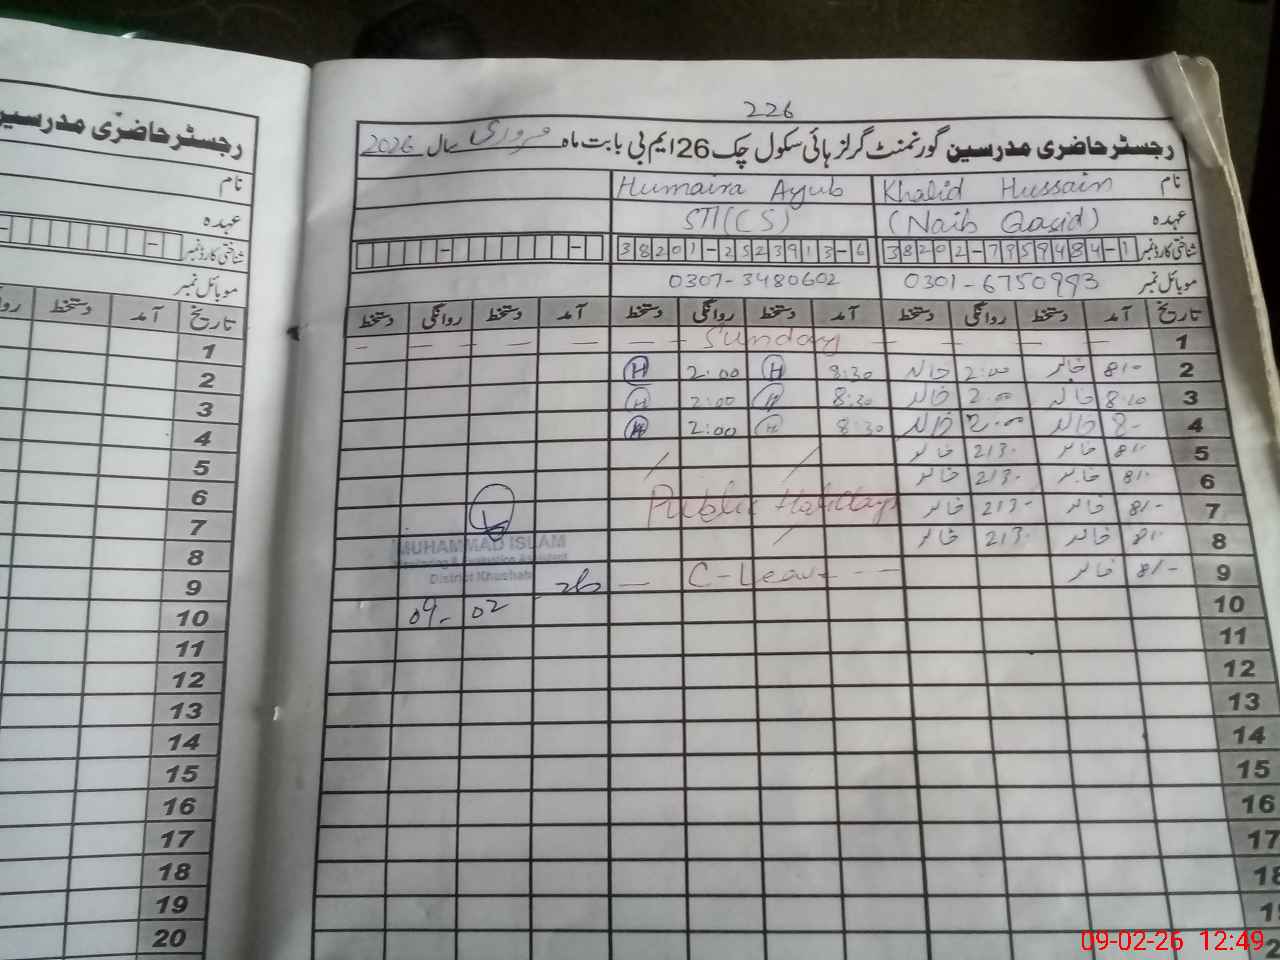 226
رجسٹر حاضری مدرسین گورنمنٹ گرلز ہائی سکول چک 26 ایم بی بابت ماہ فروری سال 2026
نام Khalid Hussain Humaira Ayub
عہدہ (Naib Qasid) STI(CS)
شناختی کارڈ نمبر 38202-7959484-1 38201-2523913-6
موبائل نمبر 0301-6750993 0307-3480602
تاریخ آمد دستخط روانگی دستخط آمد دستخط روانگی دستخط آمد دستخط روانگی دستخط
1 — — — — Sunday — — — — — —
2 8/- خالد 2:00 خالد 8:30 H 2:00 H
3 خالد 2:00 خالد 8:30 H 2:00 H
4 8- خالد 2:00 خالد 8:30 H 2:00 H
5 8/- خالد 2/3- خالد
6 8/- خالد 2/3- خالد
7 8/- خالد 2/3- خالد Public Holidays
8 8/- خالد 2/3- خالد
9 8/- خالد — C-Leave — —
10
11
12
13
14
15
16
17
18
MUHAMMAD ISLAM
Monitoring & Evaluation Assistant
District Khushab
09-02-26
رجسٹر حاضری مدرسین
نام
عہدہ
شناختی کارڈ نمبر
موبائل نمبر
تاریخ آمد دستخط
1
2
3
4
5
6
7
8
9
10
11
12
13
14
15
16
17
18
19
20
09-02-26 12:49